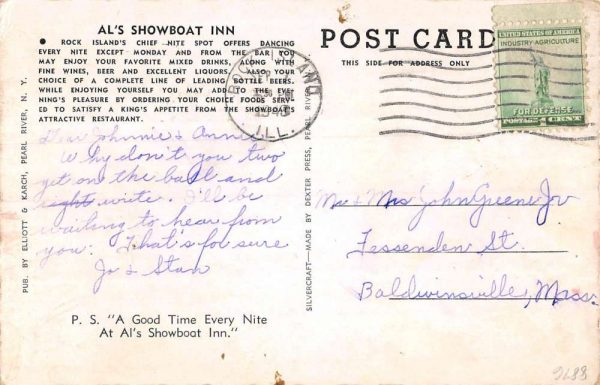 AL'S SHOWBOAT INN
● ROCK ISLAND'S CHIEF NITE SPOT OFFERS DANCING
EVERY NITE EXCEPT MONDAY AND FROM THE BAR YOU
MAY ENJOY YOUR FAVORITE MIXED DRINKS, ALONG WITH
FINE WINES, BEER AND EXCELLENT LIQUORS. ALSO YOUR
CHOICE OF A COMPLETE LINE OF LEADING BOTTLE BEERS.
WHILE ENJOYING YOURSELF YOU MAY ADD TO THE EVE-
NING'S PLEASURE BY ORDERING YOUR CHOICE FOODS SERV-
ED TO SATISFY A KING'S APPETITE FROM THE SHOWBOAT'S
ATTRACTIVE RESTAURANT.
Dear Johnnie & Anne
Why don't you two
get on the ball and
right write. I'll be
waiting to hear from
you. That's for sure
Jo & Stan
P. S. "A Good Time Every Nite
At Al's Showboat Inn."
PUB. BY ELLIOTT & KARCH, PEARL RIVER, N. Y.
SILVERCRAFT—MADE BY DEXTER PRESS, PEARL RIVER
ROCK ISLAND
ILL.
POST CARD
THIS SIDE FOR ADDRESS ONLY
UNITED STATES OF AMERICA
INDUSTRY-AGRICULTURE
FOR DEFENSE
POSTAGE 1 CENT
Mr & Mrs John Greene Jr
Fessenden St.
Baldwinsville, Mass.
9688